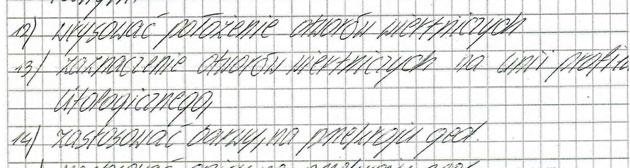 12) wrysować położenie otworów wiertniczych
13) zaznaczenie otworów wiertniczych na linii profilu
litologicznego,
14) zastosować barwy, na przekroju geol.